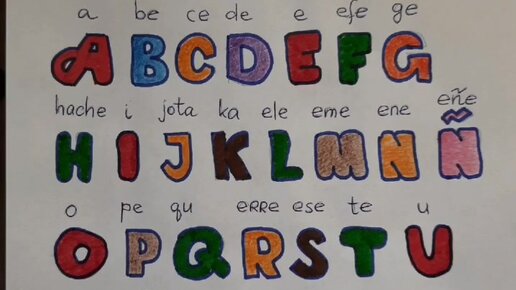 a be ce de e efe ge
A B C D E F G
hache i jota ka ele eme ene eñe
H I J K L M N Ñ
o pe qu erre ese te u
O P Q R S T U